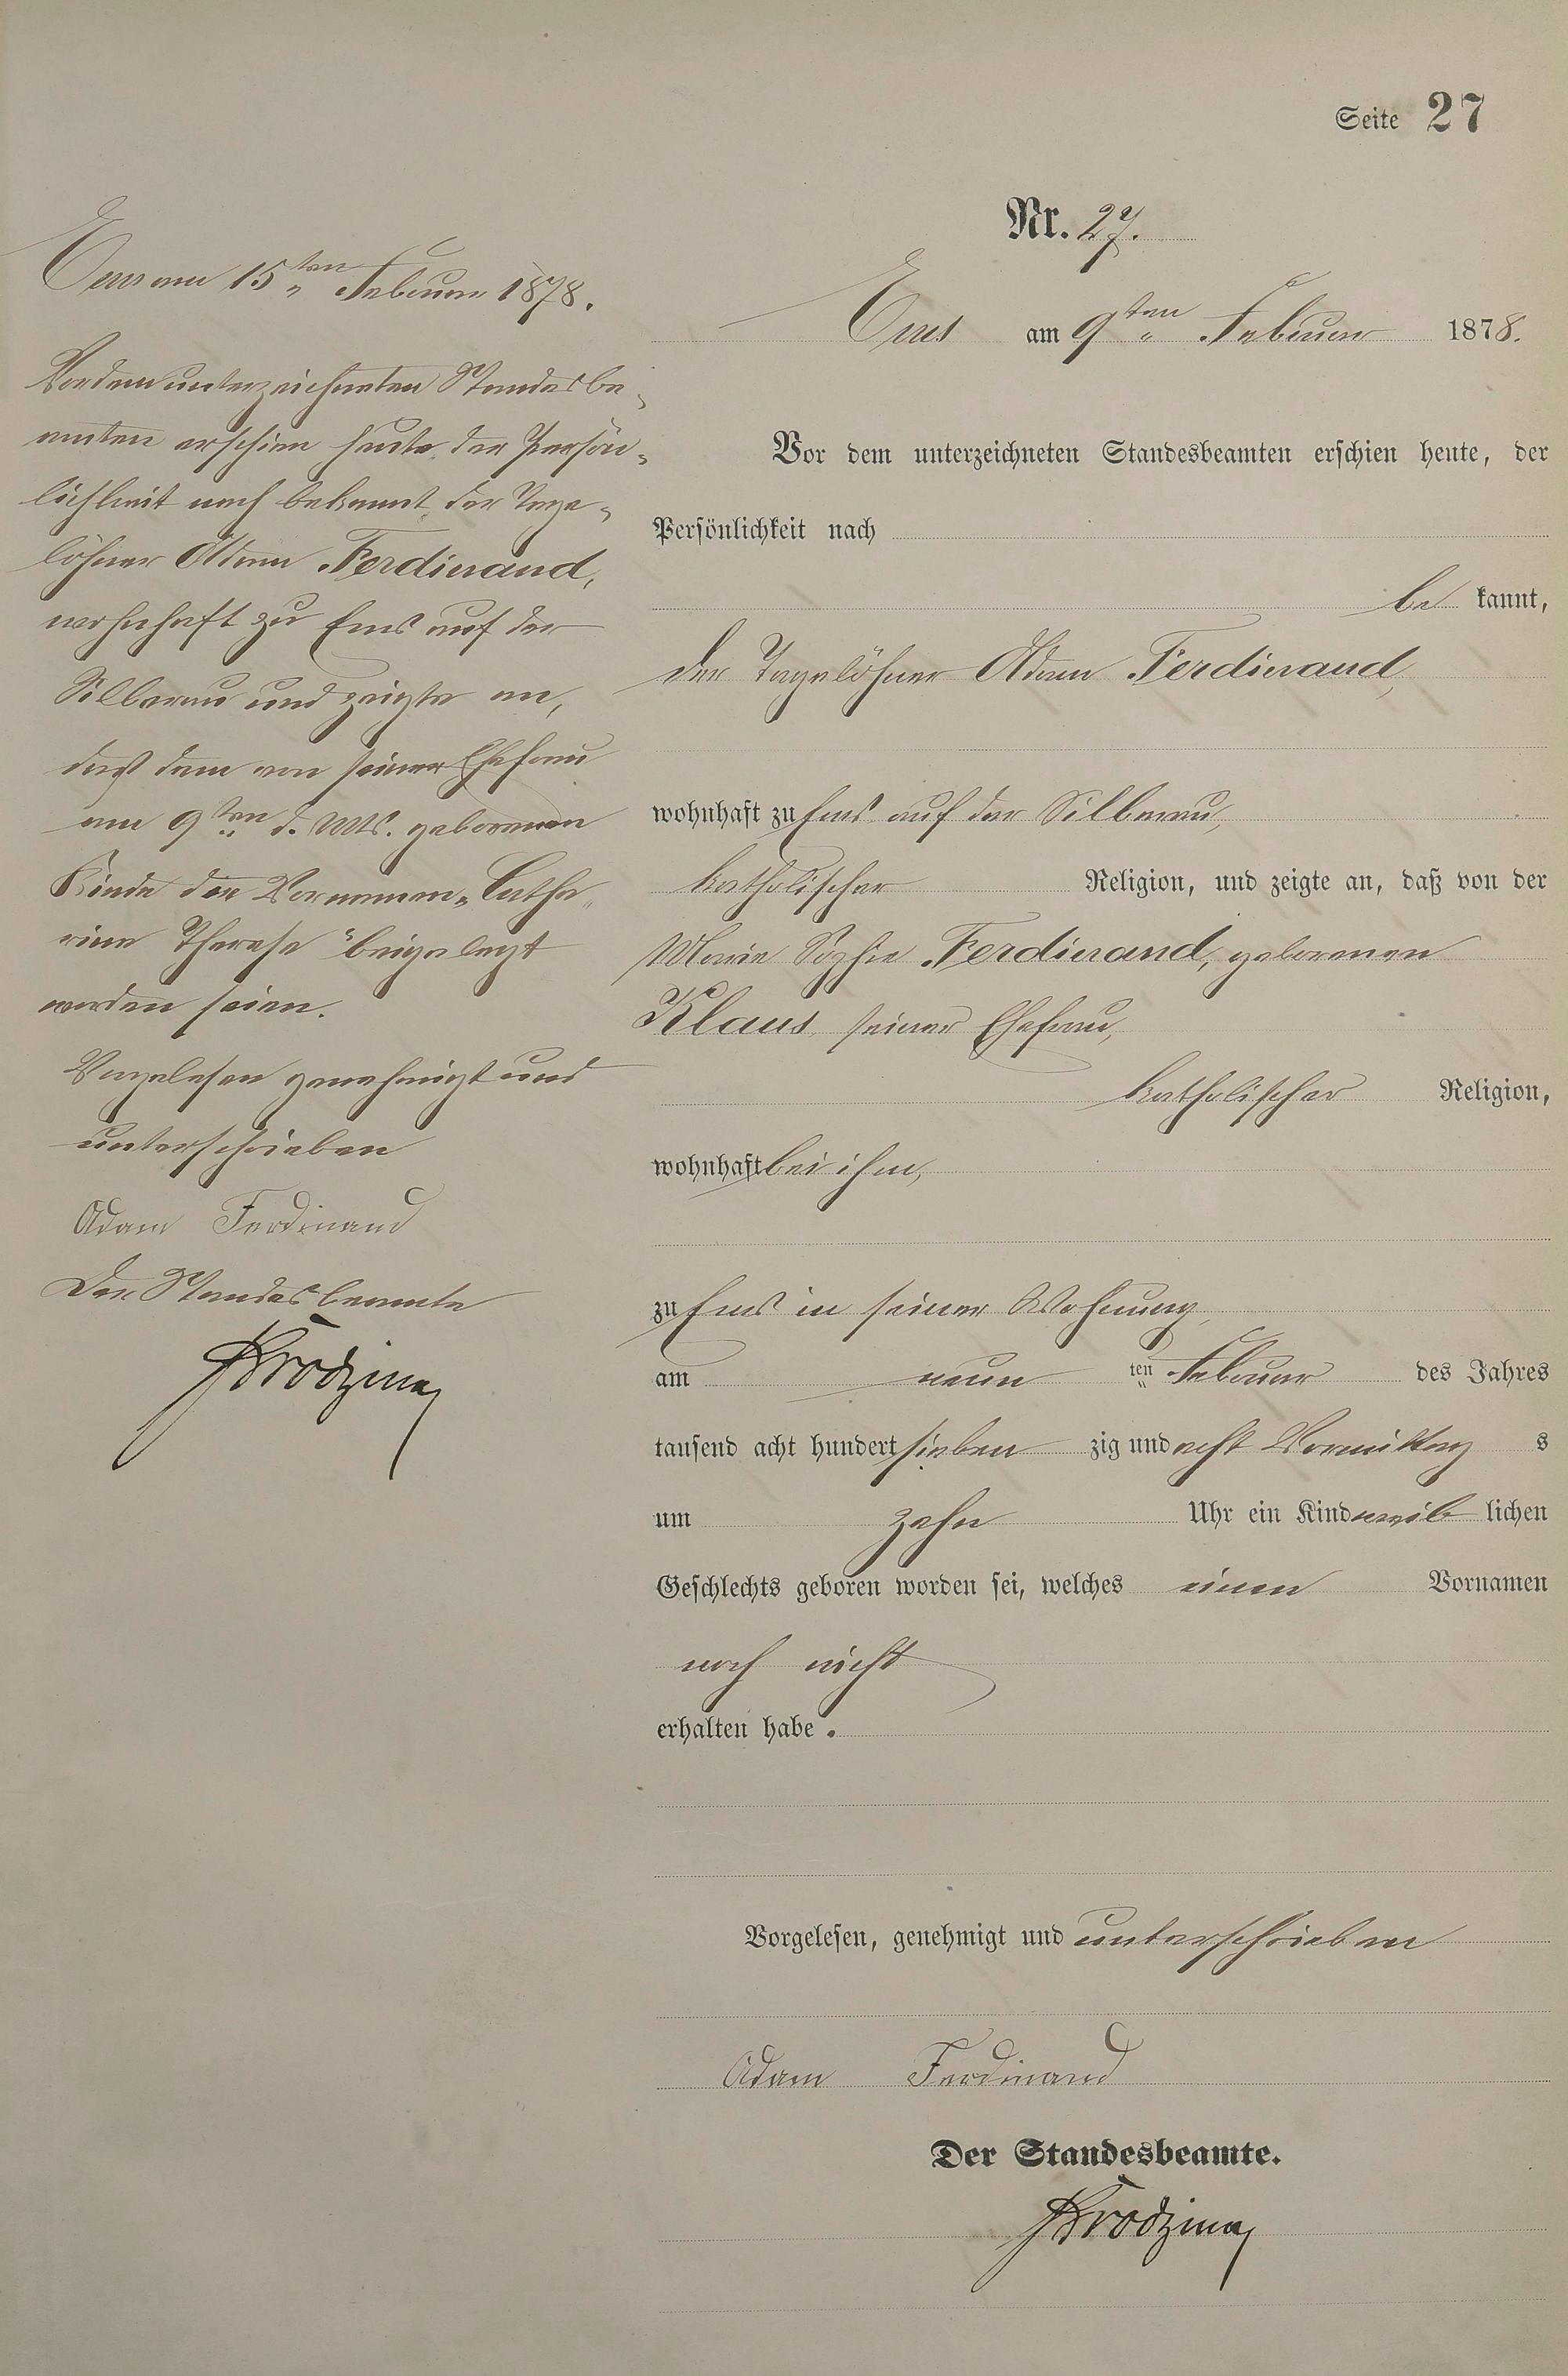 Seite 27
Nr. 27.
Ems am 9ten Februar 1878.
Vor dem unterzeichneten Standesbeamten erschien heute, der
Persönlichkeit nach
be kannt,
der Tagelöhner Adam Ferdinand,
wohnhaft zu Ems auf der Silberau,
katholischer Religion, und zeigte an, daß von der
Marie Sophie Ferdinand, geborenen
Klaus seiner Ehefrau,
katholischer Religion,
wohnhaft bei ihm,
zu Ems in seiner Wohnung,
am neun ten Februar des Jahres
tausend acht hundert sieben zig und acht Vormittag s
um zehn Uhr ein Kind weib lichen
Geschlechts geboren worden sei, welches einen Vornamen
noch nicht
erhalten habe.
Vorgelesen, genehmigt und unterschrieben
Adam Ferdinand
Der Standesbeamte.
Ems am 15ten Februar 1878.
Vor dem unterzeichneten Standesbe-
amten erschien heute, der Persön-
lichkeit nach bekannt, der Tage-
löhner Adam Ferdinand,
wohnhaft zu Ems auf der
Silberau und zeigte an,
daß dem von seiner Ehefrau
am 9ten d. Mts. geborenen
Kinde die Vornamen „Catha-
rine Therese" beigelegt
worden seien.
Vorgelesen genehmigt und
unterschrieben
Adam Ferdinand
Der Standesbeamte